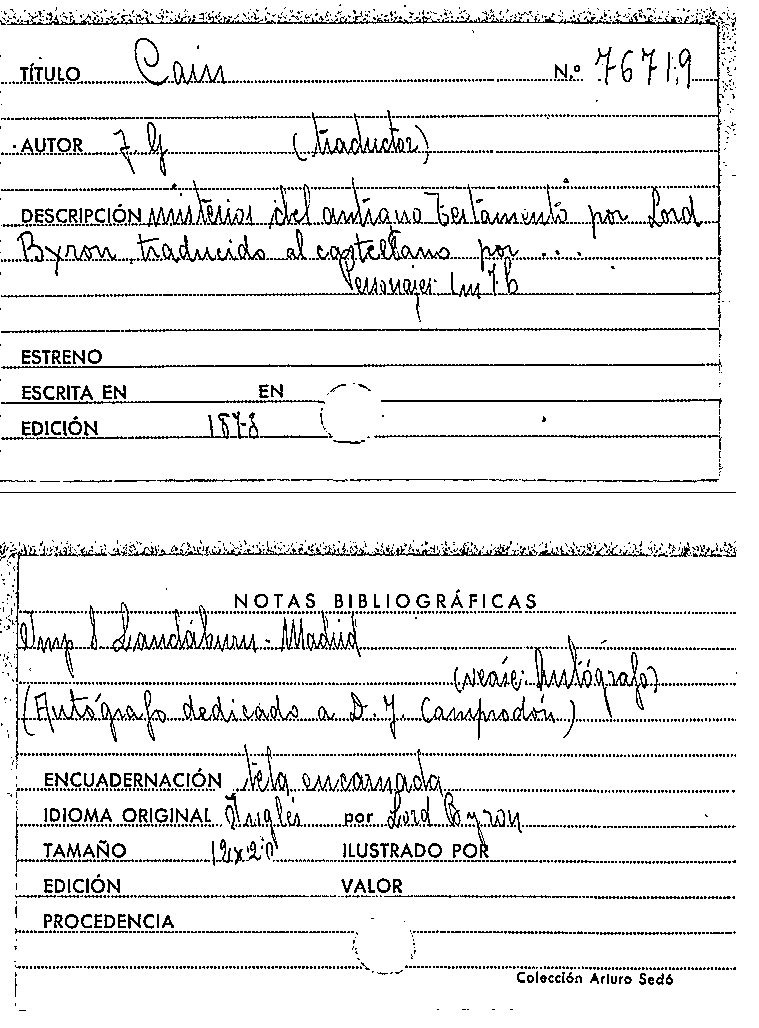 TÍTULO Cain N.º 76719
AUTOR J. G (traductor)
DESCRIPCIÓN misterios del antiguo testamento por Lord
Byron, traducido al castellano por ...
Personajes 1m 7h
ESTRENO
ESCRITA EN EN
EDICIÓN 1873
NOTAS BIBLIOGRÁFICAS
Imp S. Landáburu - Madrid
(vease: Autógrafo)
(Autógrafo dedicado a D. J. Camprodón)
ENCUADERNACIÓN tela encarnada
IDIOMA ORIGINAL Inglés por Lord Byron
TAMAÑO 12x20 ILUSTRADO POR
EDICIÓN VALOR
PROCEDENCIA
Colección Arturo Sedó